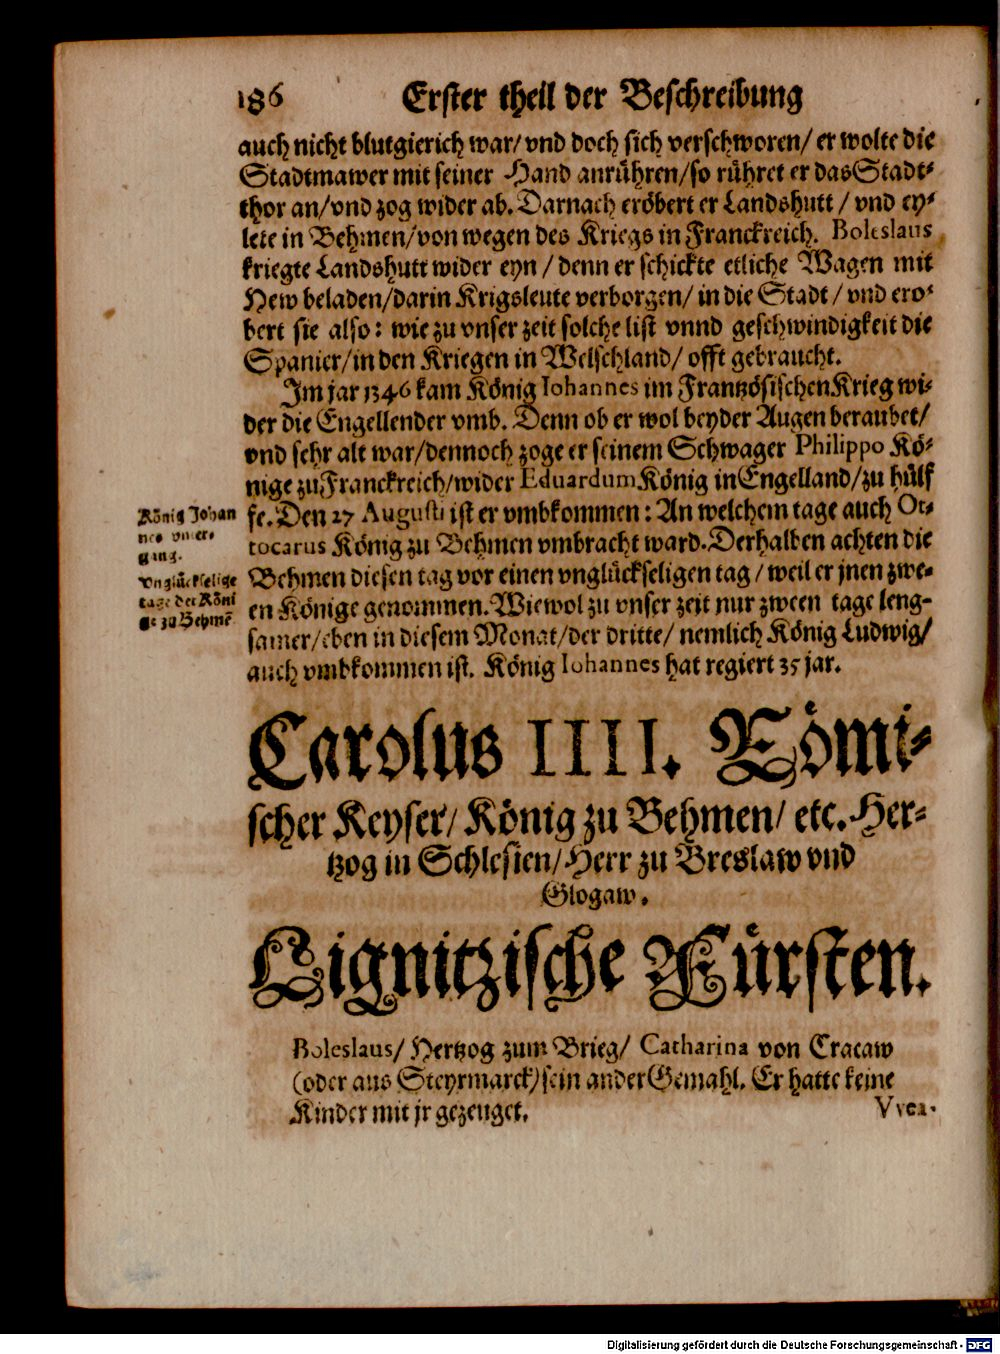 186 Erster theil der Beschreibung
auch nicht blutgierich war/ vnd doch sich verschworen/ er wolte die
Stadtmawer mit seiner Hand anrühren/ so rühret er das Stadt-
thor an/ vnd zog wider ab. Darnach eröbert er Landshutt / vnd ey-
lete in Behmen/ von wegen des Kriegs in Franckreich. Boleslaus
kriegte Landshutt wider eyn / denn er schickte etliche Wagen mit
Hew beladen/ darin Krigsleute verborgen/ in die Stadt / vnd ero-
bert sie also: wie zu vnser zeit solche list vnnd geschwindigkeit die
Spanier/ in den Kriegen in Welschland/ offt gebraucht.
Im jar 1346 kam König Iohannes im Frantzösischen Krieg wi-
der die Engellender vmb. Denn ob er wol beyder Augen beraubet/
vnd sehr alt war/ dennoch zoge er seinem Schwager Philippo Kö-
nige zu Franckreich/ wider Eduardum König in Engelland/ zu hülf
fe. Den 27 Augusti ist er vmbkommen: An welchem tage auch Ot-
tocarus König zu Behmen vmbracht ward. Derhalben achten die
Behmen diesen tag vor einen vnglückseligen tag / weil er jnen zwe-
en Könige genommen. Wiewol zu vnser zeit nur zween tage leng-
samer/ eben in diesem Monat/ der dritte/ nemlich König Ludwig/
auch vmbkommen ist. König Iohannes hat regiert 35 jar.
König Johan
nes vnter-
gang.
Vnglückselige
tage der Köni
ge zu Behmē
Carolus IIII. Römi-
scher Keyser/ König zu Behmen/ etc. Her-
tzog in Schlesien/ Herr zu Breslaw vnd
Glogaw.
Lignitzische Fürsten.
Boleslaus/ Hertzog zum Brieg/ Catharina von Cracaw
(oder aus Steyrmarck) sein ander Gemahl. Er hatte keine
Kinder mit jr gezeuget.
Digitalisierung gefördert durch die Deutsche Forschungsgemeinschaft - DFG